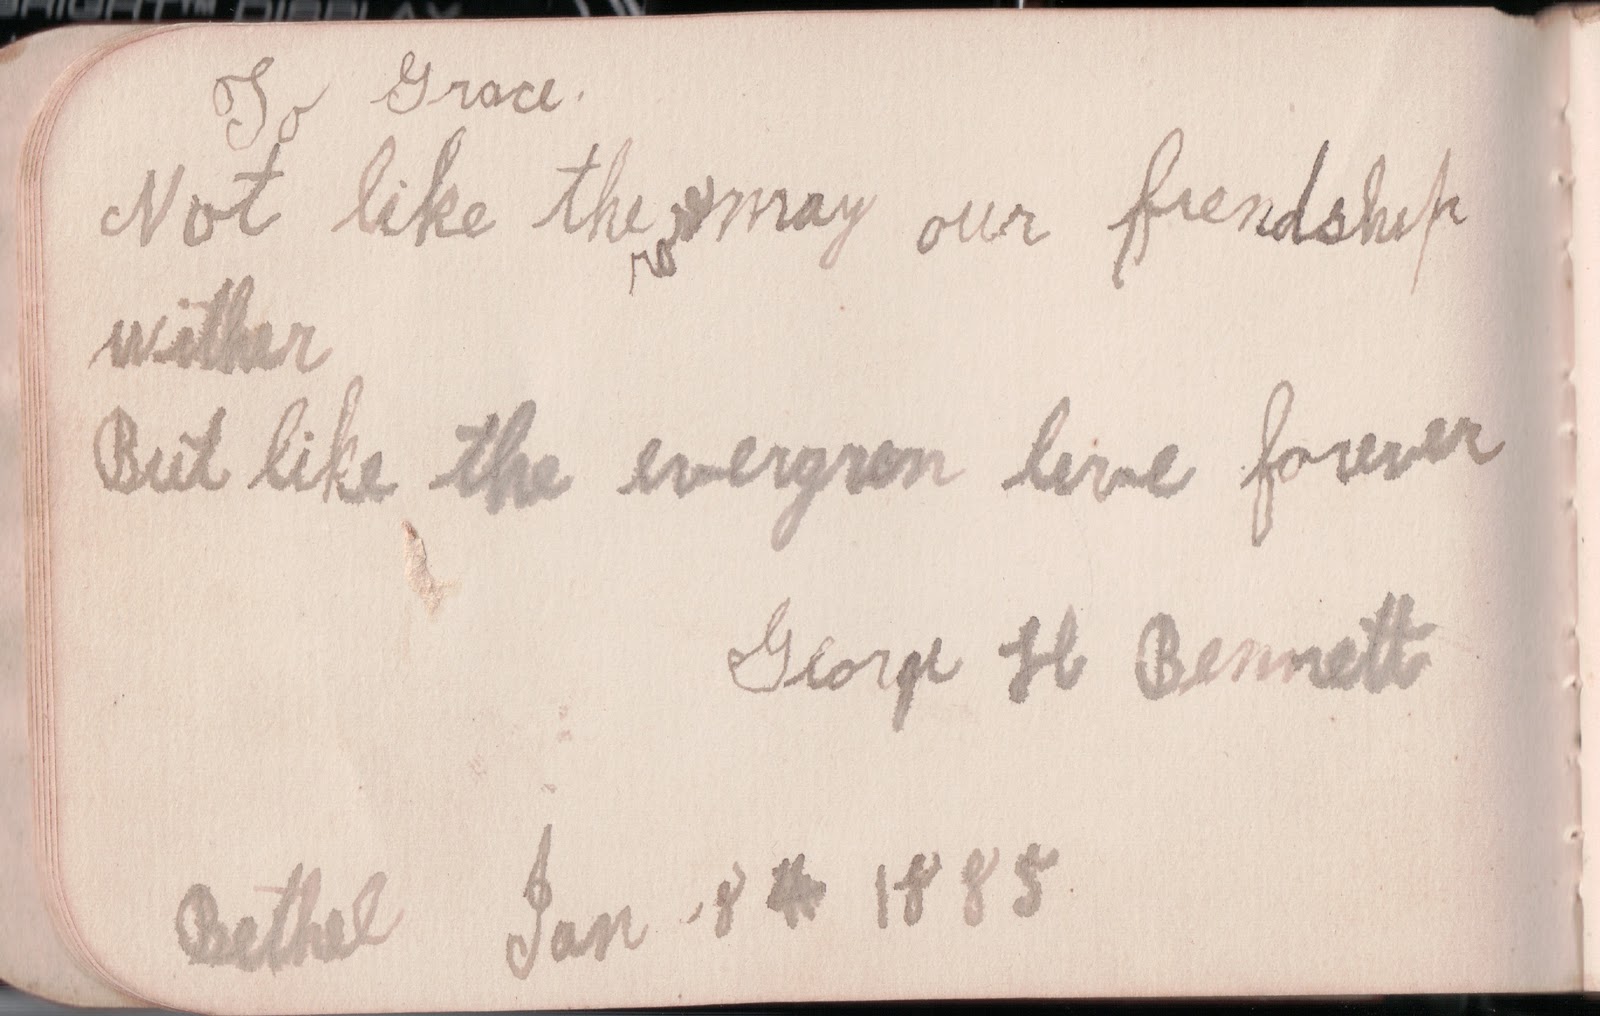 To Grace.
Not like the may our friendship
wither
But like the evergren live forever
George H Bennett
Bethel Jan 8 1885